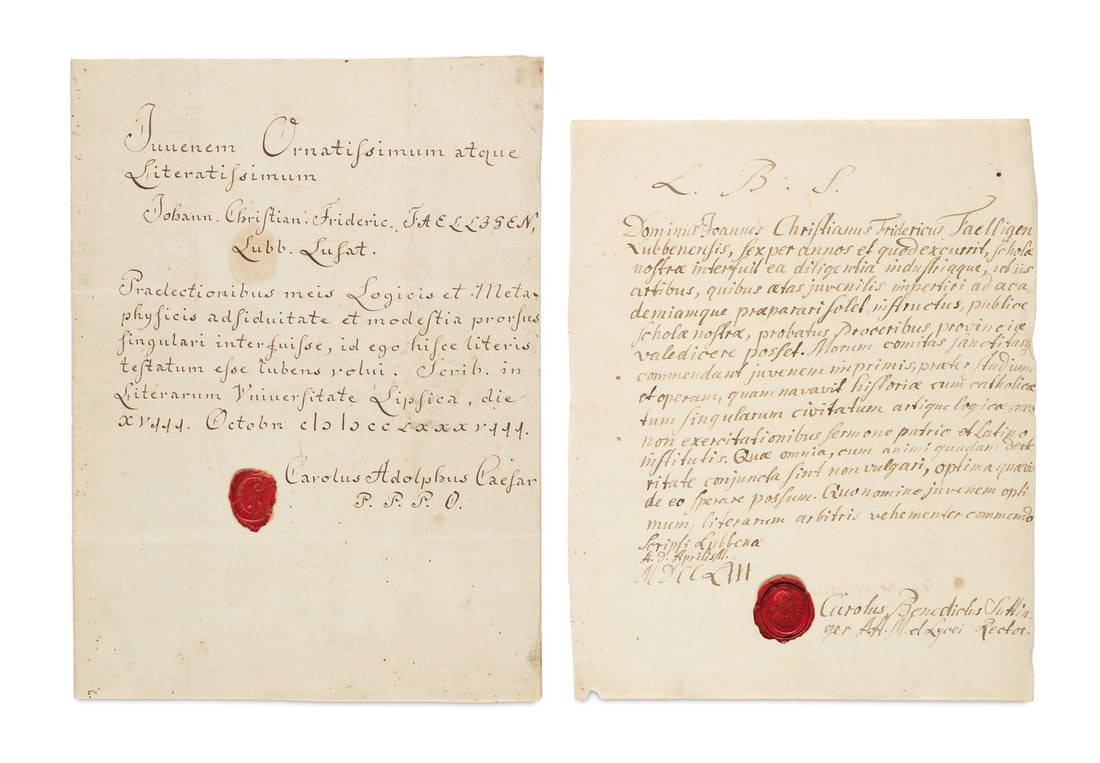 Juvenem Ornatiſsimum atque
Literatiſsimum
Johann. Chriſtian. Frideric. FAELLIGEN,
Lubb. Luſat.
Praelectionibus meis Logicis et Meta-
phyſicis adſiduitate et modeſtia prorſus
ſingulari interfuiſse, id ego hiſce literis
teſtatum eſse lubens volui. Scrib. in
Literarum Vniverſitate Lipſica, die
XVIII. Octobr
Carolus Adolphus Caeſar
P. P. P. O.
L. B. S.
Dominus Joannes Chriſtianus Fridericus Faelligen
Lubbenenſis, ſex per annos et quod excurrit, scholæ
noſtræ interfuit ea diligentia induſtriaque, ut iis
artibus, quibus ætas juvenilis impertiri ad aca
demiamque præparari ſolet, inſtructus, publice
ſcholæ noſtræ, probatus Proceribus, provinciæ
valedicere poſset. Morum comitas ſanctitasq
commendant juvenem imprimis, præter ſtudium
et operam, quam navavit hiſtoriæ cum catholicæ
tum ſingularum civitatum artique logicæ,
non exercitationibus ſermone patrio et Latino
inſtitutis. Quæ omnia, cum animi quadam dext
ritate conjuncta ſint non vulgari, optima quævis
de eo ſperare poſsum. Quo nomine juvenem opti
mum, literarum arbitris vehementer commendo
Scripſi Lubbenæ
4. D. Aprilis M.
Carolus Benedictus Suttin
ger AA. M. et Lycei Rector.